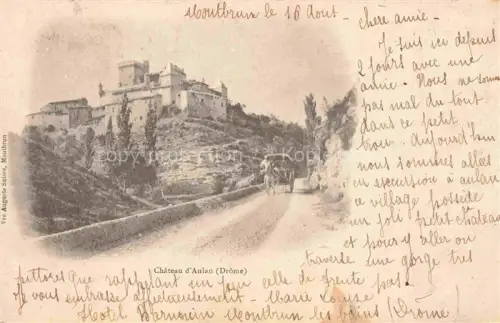 Montbrun le 16 Août -
chère amie -
Je suis ici depuis
2 jours avec une
amie. Nous ne sommes
pas mal du tout
dans ce petit
trou. Aujourd'hui
nous sommes allés
en excursion à aulan
ce village possède
un joli petit château
et pour y aller on
traverse une gorge très
pittoresque rappelant un peu celle de
Je vous embrasse affectueusement - Marie Louise
Hotel Montbrun les bains (Drôme)
Château d'Aulan (Drôme)
Vve Auguste Montbrun
Copyright photo